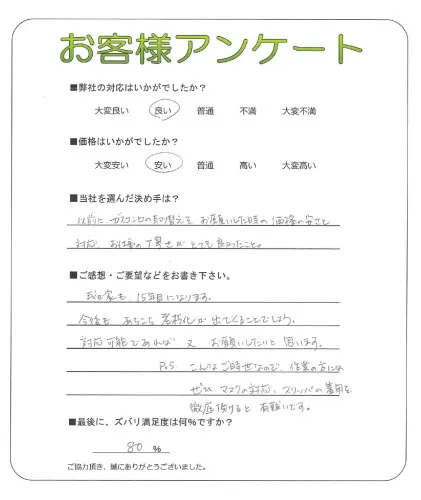 お客様アンケート
■弊社の対応はいかがでしたか？
大変良い 良い 普通 不満 大変不満
■価格はいかがでしたか？
大変安い 安い 普通 高い 大変高い
■当社を選んだ決め手は？
以前にガスコンロの取替えでお願いした時の価格の安さと
対応、お仕事の丁寧さがとても良かったこと。
■ご感想・ご要望などをお書き下さい。
我が家も15年目になります。
今後もあちこち老朽化が出てくることでしょう。
対応可能であれば又お願いしたいと思います。
P.S こんなご時世なので、作業の方には
ぜひマスクの対応、スリッパの着用を
徹底頂けると有難いです。
■最後に、ズバリ満足度は何％ですか？
80 %
ご協力頂き、誠にありがとうございました。